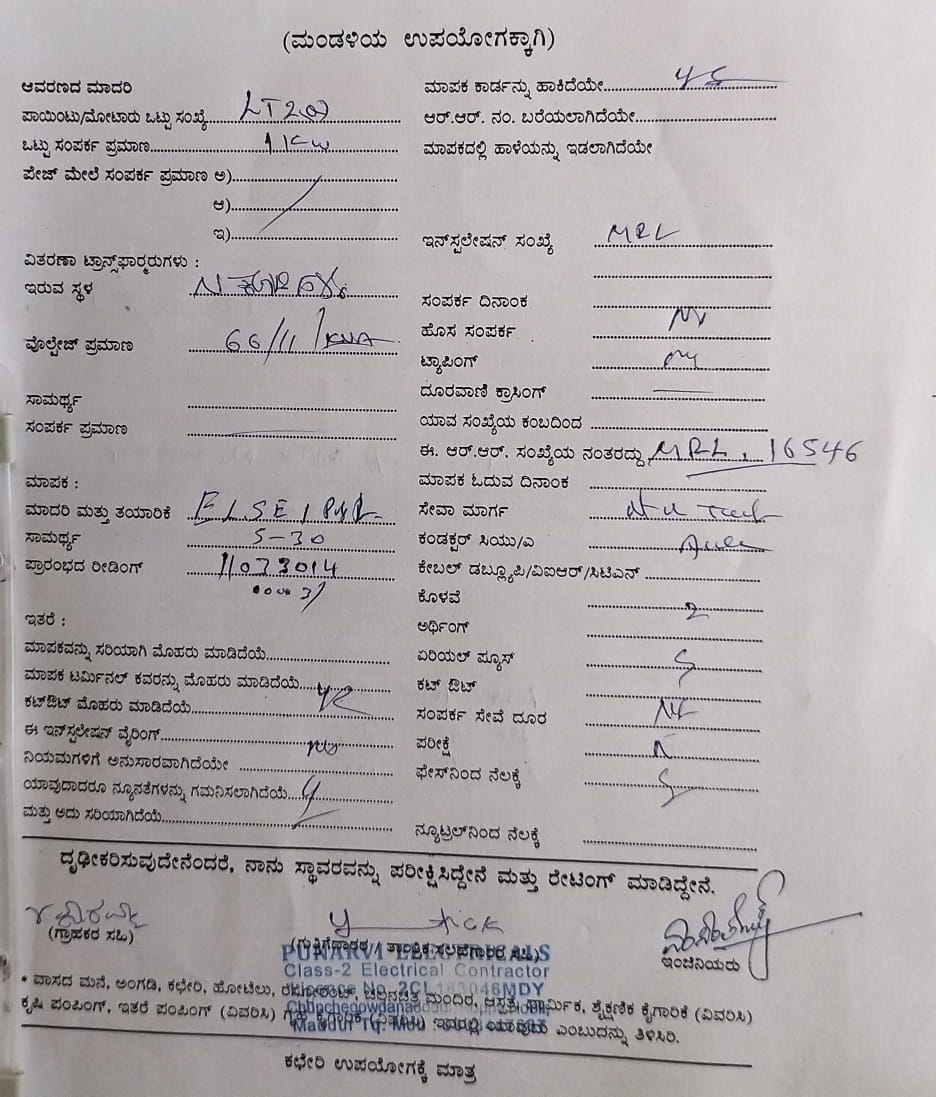 (ಮಂಡಳಿಯ ಉಪಯೋಗಕ್ಕಾಗಿ)
ಆವರಣದ ಮಾದರಿ
ಪಾಯಿಂಟು/ಮೋಟಾರು ಒಟ್ಟು ಸಂಖ್ಯೆ
ಒಟ್ಟು ಸಂಪರ್ಕ ಪ್ರಮಾಣ 1 KW
ಪೇಜ್ ಮೇಲೆ ಸಂಪರ್ಕ ಪ್ರಮಾಣ ಅ)
ಆ)
ಇ)
ವಿತರಣಾ ಟ್ರಾನ್ಸ್‌ಫಾರ್ಮರುಗಳು :
ಇರುವ ಸ್ಥಳ
ವೊಲ್ಟೇಜ್ ಪ್ರಮಾಣ 66/11/KVA
ಸಾಮರ್ಥ್ಯ
ಸಂಪರ್ಕ ಪ್ರಮಾಣ
ಮಾಪಕ :
ಮಾದರಿ ಮತ್ತು ತಯಾರಿಕೆ
ಸಾಮರ್ಥ್ಯ 5-30
ಪ್ರಾರಂಭದ ರೀಡಿಂಗ್ 11073014
ಇತರೆ :
ಮಾಪಕವನ್ನು ಸರಿಯಾಗಿ ಮೊಹರು ಮಾಡಿದೆಯೆ
ಮಾಪಕ ಟರ್ಮಿನಲ್ ಕವರನ್ನು ಮೊಹರು ಮಾಡಿದೆಯೆ
ಕಟ್‌ಔಟ್ ಮೊಹರು ಮಾಡಿದೆಯೆ
ಈ ಇನ್‌ಸ್ಟಲೇಷನ್ ವೈರಿಂಗ್
ನಿಯಮಗಳಿಗೆ ಅನುಸಾರವಾಗಿದೆಯೇ
ಯಾವುದಾದರೂ ನ್ಯೂನತೆಗಳನ್ನು ಗಮನಿಸಲಾಗಿದೆಯೆ
ಮತ್ತು ಅದು ಸರಿಯಾಗಿದೆಯೆ
ಮಾಪಕ ಕಾರ್ಡನ್ನು ಹಾಕಿದೆಯೇ
ಆರ್.ಆರ್. ನಂ. ಬರೆಯಲಾಗಿದೆಯೇ
ಮಾಪಕದಲ್ಲಿ ಹಾಳೆಯನ್ನು ಇಡಲಾಗಿದೆಯೇ
ಇನ್‌ಸ್ಟಲೇಷನ್ ಸಂಖ್ಯೆ MRL
ಸಂಪರ್ಕ ದಿನಾಂಕ
ಹೊಸ ಸಂಪರ್ಕ
ಟ್ಯಾಪಿಂಗ್
ದೂರವಾಣಿ ಕ್ರಾಸಿಂಗ್
ಯಾವ ಸಂಖ್ಯೆಯ ಕಂಬದಿಂದ
ಈ. ಆರ್.ಆರ್. ಸಂಖ್ಯೆಯ ನಂತರದ್ದು MRL. 16546
ಮಾಪಕ ಓದುವ ದಿನಾಂಕ
ಸೇವಾ ಮಾರ್ಗ
ಕಂಡಕ್ಟರ್ ಸಿಯು/ಎ
ಕೇಬಲ್ ಡಬ್ಲ್ಯೂಪಿ/ವಿಐಆರ್/ಸಿಟಿಎನ್
ಕೊಳವೆ 2
ಅರ್ಥಿಂಗ್
ಏರಿಯಲ್ ಪ್ಯೂಸ್
ಕಟ್ ಔಟ್
ಸಂಪರ್ಕ ಸೇವೆ ದೂರ
ಪರೀಕ್ಷೆ
ಫೇಸ್‌ನಿಂದ ನೆಲಕ್ಕೆ
ನ್ಯೂಟ್ರಲ್‌ನಿಂದ ನೆಲಕ್ಕೆ
ದೃಢೀಕರಿಸುವುದೇನೆಂದರೆ, ನಾನು ಸ್ಥಾವರವನ್ನು ಪರೀಕ್ಷಿಸಿದ್ದೇನೆ ಮತ್ತು ರೇಟಿಂಗ್ ಮಾಡಿದ್ದೇನೆ.
(ಗ್ರಾಹಕರ ಸಹಿ)
(ಗುತ್ತಿಗೆದಾರರ / ತಾಂತ್ರಿಕ ಸಲಹಗಾರರ ಸಹಿ)
ಇಂಜಿನಿಯರು
PUNARVI ELECTRICALS
Class-2 Electrical Contractor
Licence No. 2CL163046MDY
* ವಾಸದ ಮನೆ, ಅಂಗಡಿ, ಕಛೇರಿ, ಹೋಟೆಲು, ರೆಸ್ಟೋರೆಂಟ್, ಚಲನಚಿತ್ರ ಮಂದಿರ, ಆಸ್ಪತ್ರೆ, ಧಾರ್ಮಿಕ, ಶೈಕ್ಷಣಿಕ ಕೈಗಾರಿಕೆ (ವಿವರಿಸಿ)
ಕೃಷಿ ಪಂಪಿಂಗ್, ಇತರೆ ಪಂಪಿಂಗ್ (ವಿವರಿಸಿ) ಗೃಹ ಕೈಗಾರಿಕೆ (ವಿವರಿಸಿ) ಇವರಲ್ಲಿ ಯಾವುದು ಎಂಬುದನ್ನು ತಿಳಿಸಿರಿ.
ಕಛೇರಿ ಉಪಯೋಗಕ್ಕೆ ಮಾತ್ರ